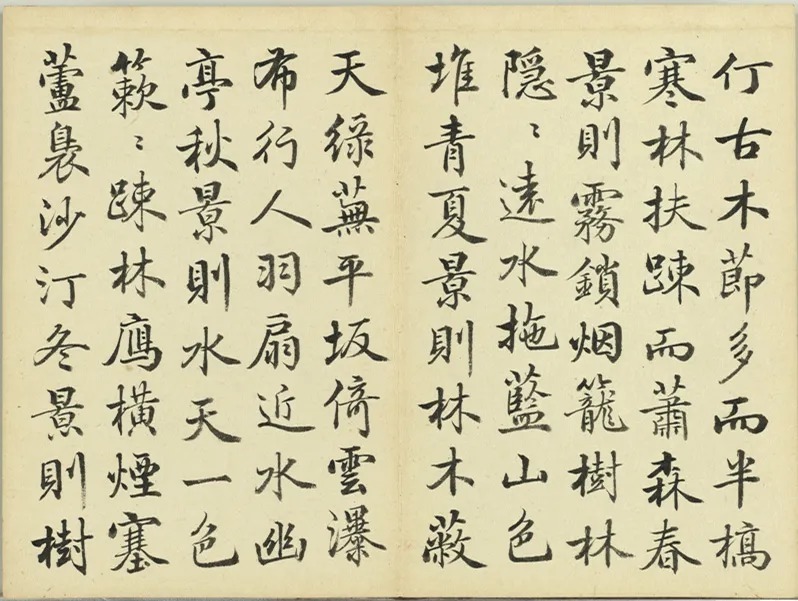 仃古木節多而半槁
寒林扶踈而蕭森春
景則霧鎖烟籠樹林
隠〻遠水拖藍山色
堆青夏景則林木蔽
天綠蕪平坂倚雲瀑
布行人羽扇近水幽
亭秋景則水天一色
簌〻踈林鴈橫煙塞
蘆裊沙汀冬景則樹